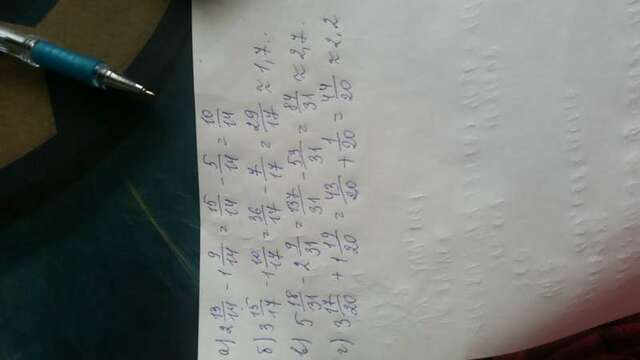 а) 2 13/14 - 1 9/14 = 15/14 - 5/14 = 10/14
б) 3 15/17 - 1 10/17 = 36/17 - 7/17 = 29/17 ≈ 1,7..
в) 5 18/31 - 2 9/31 = 137/31 - 53/31 = 84/31 ≈ 2,7.
г) 3 17/20 + 1 19/20 = 43/20 + 1/20 = 44/20 ≈ 2,2